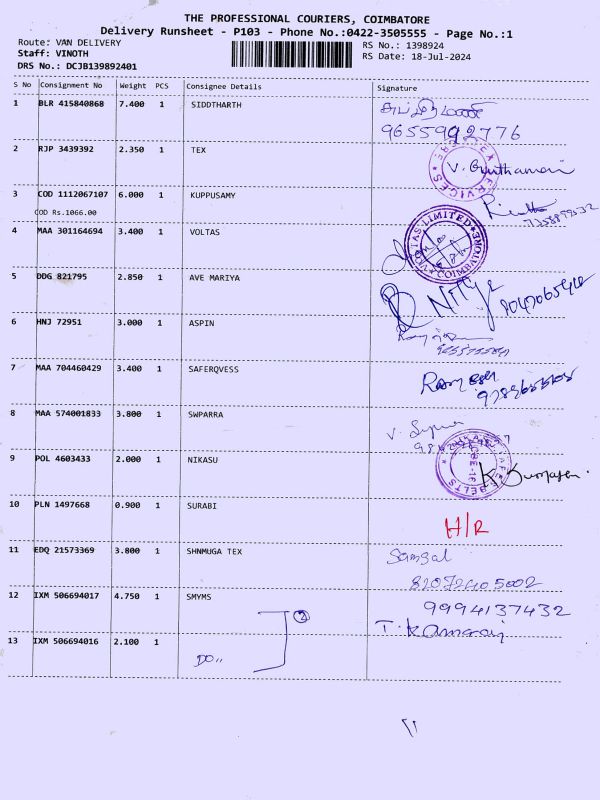 THE PROFESSIONAL COURIERS, COIMBATORE
Delivery Runsheet - P103 - Phone No.:0422-3505555 - Page No.:1
Route: VAN DELIVERY
Staff: VINOTH
DRS No.: DCJB139892401
RS No.: 1398924
RS Date: 18-Jul-2024
S No Consignment No Weight PCS Consignee Details Signature
1 BLR 415840868 7.400 1 SIDDTHARTH
9655992776
2 RJP 3439392 2.350 1 TEX
3 COD 1112067107 6.000 1 KUPPUSAMY
COD Rs.1066.00
4 MAA 301164694 3.400 1 VOLTAS
VOLTAS LIMITED COIMBATORE
5 DDG 821795 2.850 1 AVE MARIYA
6 HNJ 72951 3.000 1 ASPIN
7 MAA 704460429 3.400 1 SAFERQVESS
Ramesh
8 MAA 574001833 3.800 1 SWPARRA
9 POL 4603433 2.000 1 NIKASU
10 PLN 1497668 0.900 1 SURABI H/R
11 EDQ 21573369 3.800 1 SHNMUGA TEX
12 IXM 506694017 4.750 1 SMYMS 9994137432
2 T. Kamaraj
13 IXM 506694016 2.100 1 DO,,